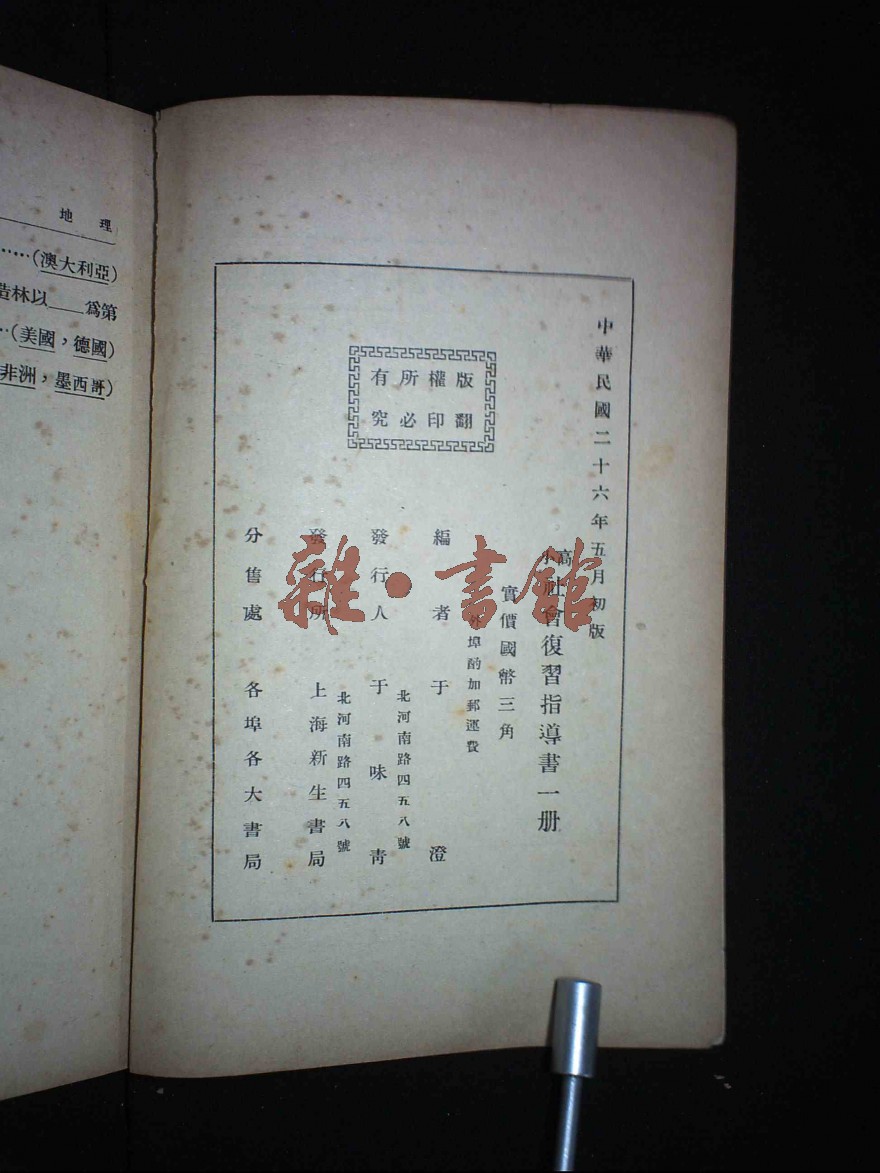 中華民國二十六年五月初版
高小社會復習指導書一册
實價國幣三角
外埠酌加郵運費
編者于澄
北河南路四五八號
發行人于味青
北河南路四五八號
發行所上海新生書局
分售處各埠各大書局
版權所有
翻印必究
雜·書館
地理
……(澳大利亞)
造林以__爲第
…(美國，德國)
非洲，墨西哥)